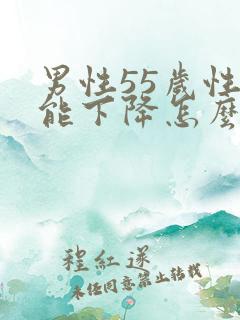 男性55歲性
能下降怎麼
程紅遂
未经同意禁止转载